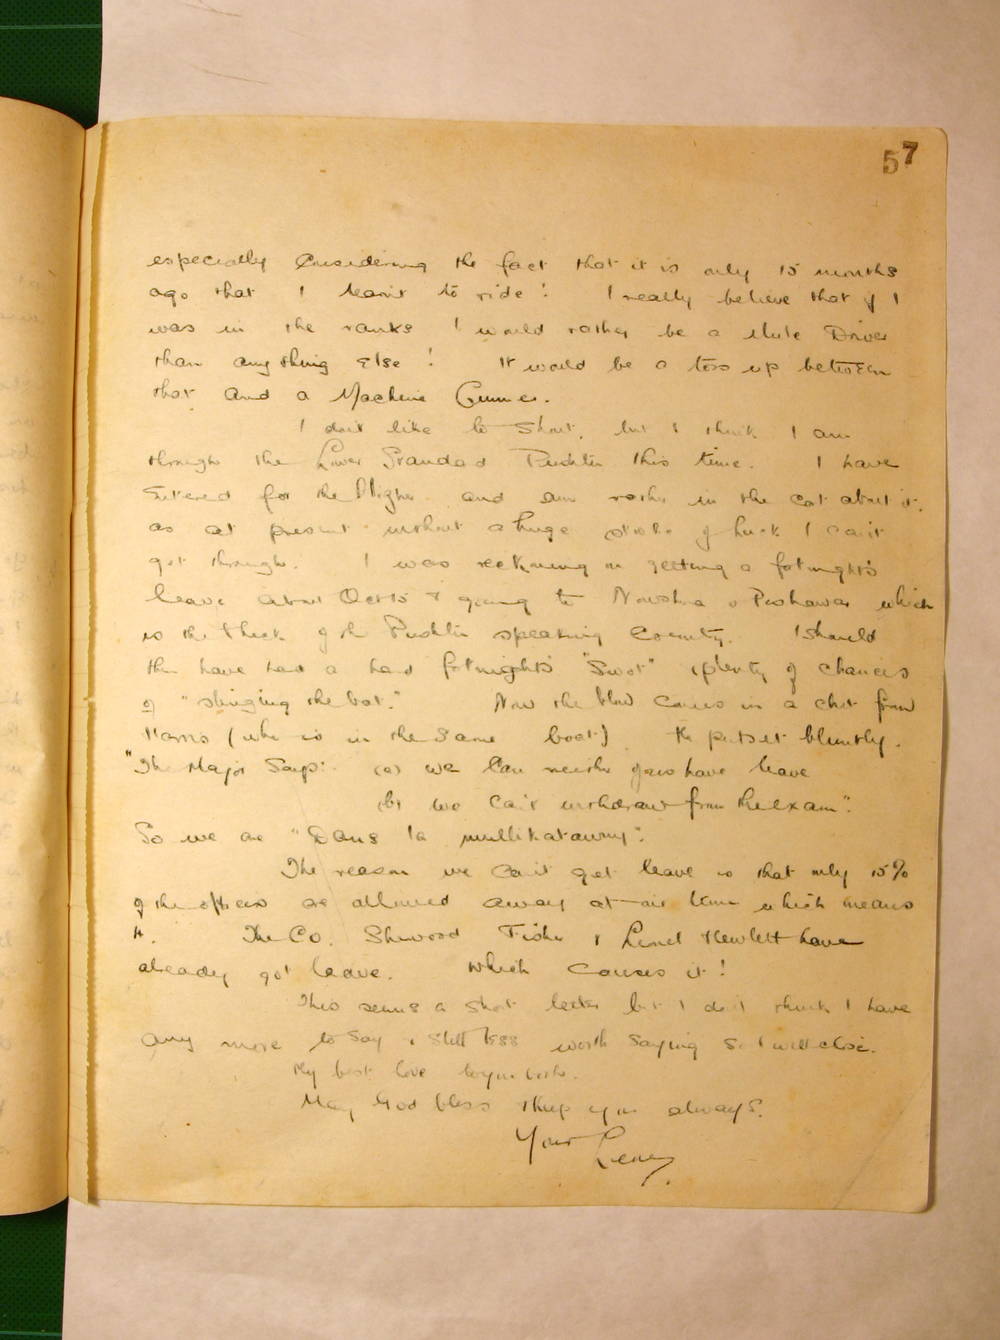 57
especially considering the fact that it is only 15 months
ago that I learnt to ride! I really believe that if I
was in the ranks I would rather be a Mule Driver
than any thing else! It would be a toss up between
that and a Machine Gunner.
I don't like to shout, but I think I am
through the Lower Standard Pushtu this time. I have
entered for the Higher and am rather in the cat about it,
as at present without a huge stroke of luck I can't
get through. I was reckoning on getting a fortnight's
leave about Oct 15 & going to Nowshera or Peshawar which
is the thick of the Pushtu speaking country. I should
then have had a hard fortnight's "Swot" & plenty of chances
of "slinging the bat." Now the blow comes in a chit from
Harris (who is in the same boat). He puts it bluntly.
"The Major says: (a) we can neither of us have leave
(b) we can't withdraw from the exam".
So we are "Dans la mullikatawny".
The reason we can't get leave is that only 15%
of the officers are allowed away at one time which means
4. The C.O. Sherwood Fisher & Lionel Hewlett have
already got leave. Which causes it!
This seems a short letter but I don't think I have
any more to say & still less worth saying so I will close.
My best love to you both.
May God bless & keep you always.
Your